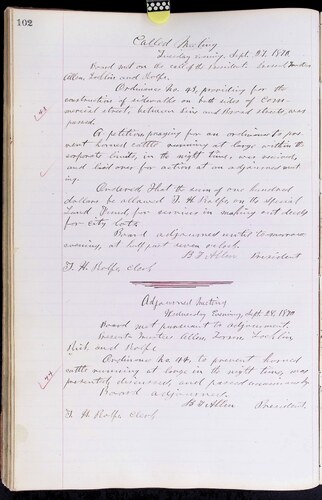 102
Called Meeting
Tuesday evening, Sept. 27, 1870.
Board met on the call of the President. Present, Trustees
Allen, Locklin and Rolfe.
Ordinance No. 43, providing for the
construction of sidewalks on both sides of Com-
mercial street, between Main and Broad streets was
passed.
43
A petition praying for an ordinance to pre-
vent horned cattle running at large within the
corporate limits, in the night time, was received,
and laid over for action at an adjourned meet-
ing.
Ordered That the sum of one hundred
dollars be allowed T. H. Rolfe, on the Special
Land Fund, for services in making out deeds
for city lots.
Board adjourned until to-morrow
evening, at half past seven o'clock.
Allen President
T. H. Rolfe, Clerk
Adjourned Meeting
Wednesday Evening, Sept. 28, 1870
Board met pursuant to adjournment.
Present Trustees Allen, Locklin
Rich and Rolfe.
Ordinance No. 44, to prevent horned
cattle running at large in the night time, was
presented, discussed, and passed unanimously
44
Board adjourned.
Allen President.
T. H. Rolfe Clerk